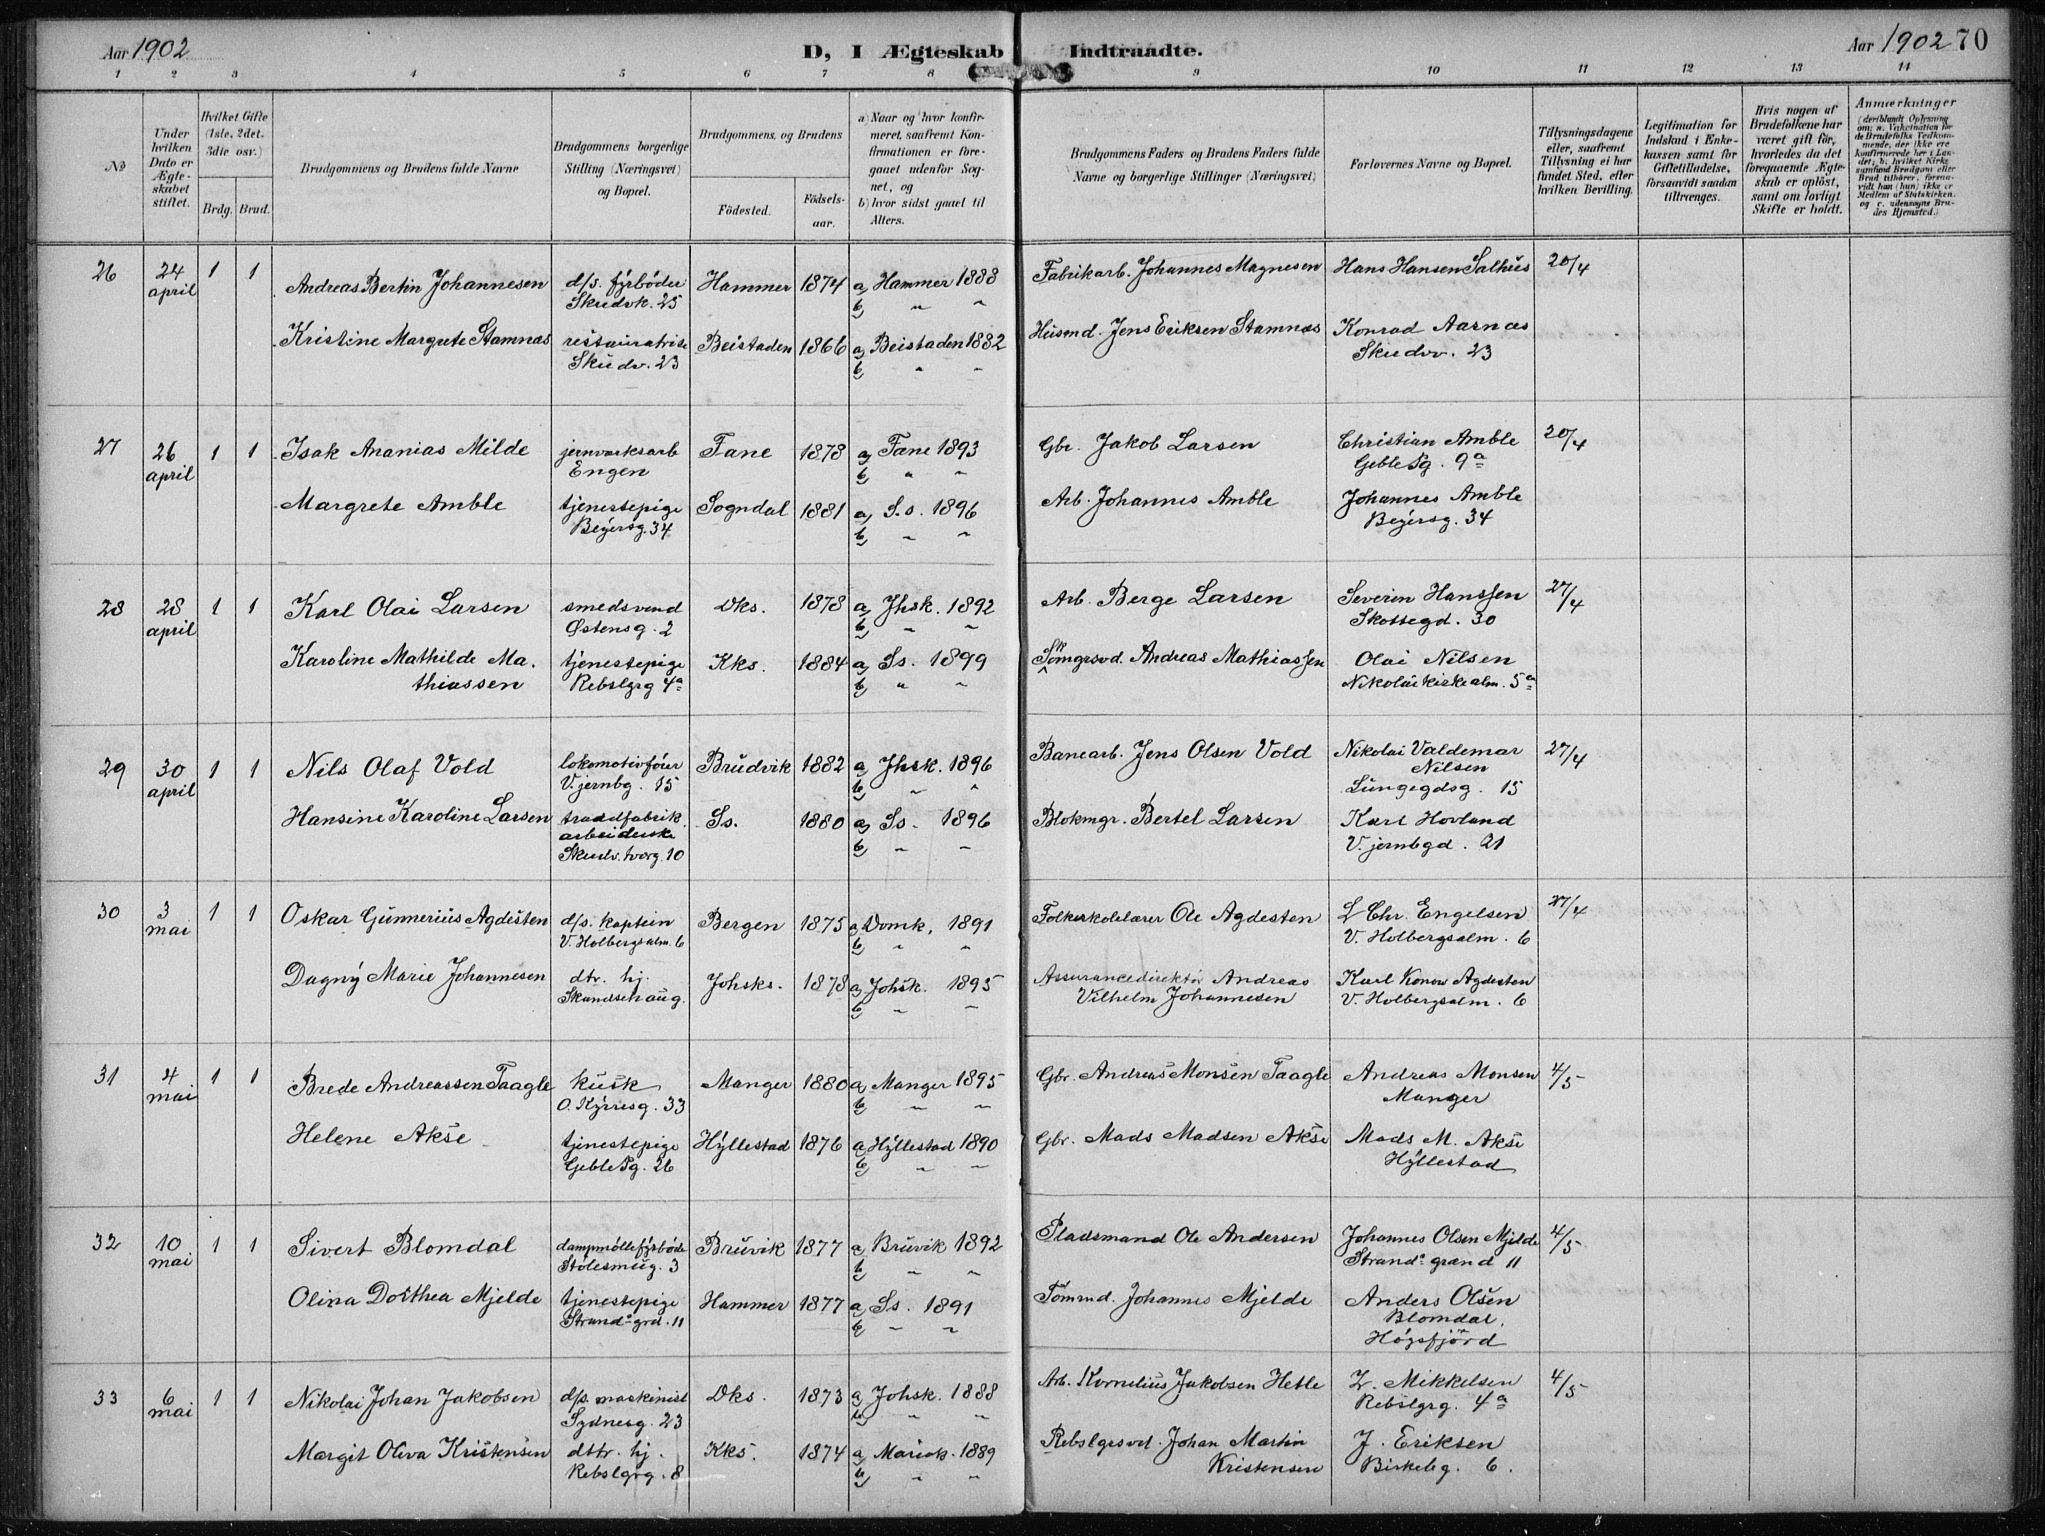 Aar 1902
D, I Ægteskab Indtraadte.
Aar 1902 70
1 2 3 4 5 6 7 8 9 10 11 12 13 14
No
Under hvilken Dato er Ægteskabet stiftet.
Hvilket Gifte (1ste, 2det. 3die osv.)
Brdg. Brud.
Brudgommens og Brudens fulde Navne
Brudgommens borgerlige Stilling (Næringsvei) og Bopæl.
Brudgommens, og Brudens
Födested.
Födsels-aar.
a) Naar og hvor konfirmeret, saafremt Konfirmationen er foregaaet udenfor Sognet, og
b) hvor sidst gaaet til Alters.
Brudgommens Faders og Brudens Faders fulde Navne og borgerlige Stillinger (Næringsvei)
Forlovernes Navne og Bopæl.
Tillysningsdagene eller, saafremt Tillysning ei har fundet Sted, efter hvilken Bevilling.
Legitimation for Indskud i Enkekassen samt for Giftetilladelse, forsaavidt saadan tiltrænges.
Hvis nogen af Brudefolkene har været gift før, hvorledes da det foregaaende Ægteskab er oplöst, samt om lovligt Skifte er holdt.
Anmærkninger (deriblandt Oplysning om: a. Vakcination for de Brudefolks Vedkommende, der ikke ere konfirmerede her i Landet; b. hvilket Kirkesamfund Brudgom eller Brud tilhører, forsaavidt han (hun) ikke er Medlem af Statskirken. og c. udensogns Brudes Hjemsted.)
26 24 april 1 1 Andreas Bertin Johannesen d/s. fyrbøder Skudvk. 25 Hammer 1874 a) Hammer 1888 b) " " Fabrikarb. Johannes Magnesen Hans Hansen Salhus 20/4
Kristine Margrete Stamnas restauratrise Skudv. 23 Beistaden 1866 a) Beistaden 1882 b) " " Husmd. Jens Eriksen Stamnas Konrad Aarnas Skudvv. 23
27 26 april 1 1 Isak Ananias Milde jernvarksarb Engen Fane 1878 a) Fane 1893 b) " " Gbr. Jakob Larsen Christian Amble Geblesg. 9a 20/4
Margrete Amble tjenestepige Beyersg. 34 Sogndal 1881 a) S.s. 1896 b) " " Arb. Johannes Amble Johannes Amble Beyersg. 34
28 28 april 1 1 Karl Olai Larsen smedsvend Østensg. 2 Dks. 1878 a) Jhsk. 1892 b) " " Arb. Berge Larsen Severin Hanssen Skottegd. 30 27/4
Karoline Mathilde Mathiassen tjenestepige Rebslgrg 4a Kks. 1884 a) Ss. 1899 b) " " Andreas Mathiassen Olai Nilsen Nikolaikirkealm. 5a
29 30 april 1 1 Nils Olaf Vold lokomotivfører V. jernbg. 15 Brudvik 1882 a) Jhsk. 1896 b) " " Banearb. Jens Olsen Vold Nikolai Valdemar Nilsen Lungegdsg. 15 27/4
Hansine Karoline Larsen traadfabrik. arbeiderske Skudv. tværg. 10 Ss. 1880 a) Ss. 1896 b) " " Blokmgr. Bertel Larsen Karl Hovland V. jernbgd. 21
30 3 mai 1 1 Oskar Gunnerius Agdesten d/s. kaptein V. Holbergsalm. 6 Bergen 1875 a) Domk. 1891 b) " " Folkeskolelærer Ole Agdesten L Chr. Engelsen V. Holbergsalm. 6 27/4
Dagny Marie Johannesen dtr. hj. Skandsehaug. Johsks. 1878 a) Johsk. 1895 b) " " Assurancedirektør Andreas Vilhelm Johannesen Karl Konow Agdesten V. Holbergsalm. 6
31 4 mai 1 1 Brede Andreassen Taagle kusk O. Kyrresg. 33 Manger 1880 a) Manger 1895 b) " " Gbr. Andreas Monsen Taagle Andreas Monsen Manger 4/5
Helene Akse tjenestepige Geblesg. 26 Hyllestad 1876 a) Hyllestad 1890 b) " " Gbr. Mads Madsen Akse Mads M. Akse Hyllestad
32 10 mai 1 1 Sivert Blomdal dampmøllefyrbøder Stølesmug. 3 Bruvik 1877 a) Bruvik 1892 b) " " Pladsmand Ole Andersen Johannes Olsen Mjelde Strandsgrænd 11 4/5
Olina Dorthea Mjelde tjenestepige Strandsgrd. 11 Hammer 1877 a) Ss. 1891 b) " " Tømmd. Johannes Mjelde Anders Olsen Blomdal, Høgsfjord
33 6 mai 1 1 Nikolai Johan Jakobsen d/s. maskinist Sydnesg. 23 Dks. 1873 a) Johsk. 1888 b) " " Arb. Kornelius Jakobsen Hetle Z. Mikkelsen Rebslgrg. 4a 4/5
Margit Oliva Kristensen dttr. hj. Rebslgrg. 8 Kks. 1874 a) Mariak. 1889 b) " " Rebslgrsvd. Johan Martin Kristensen J. Eriksen Birkebg. 6.